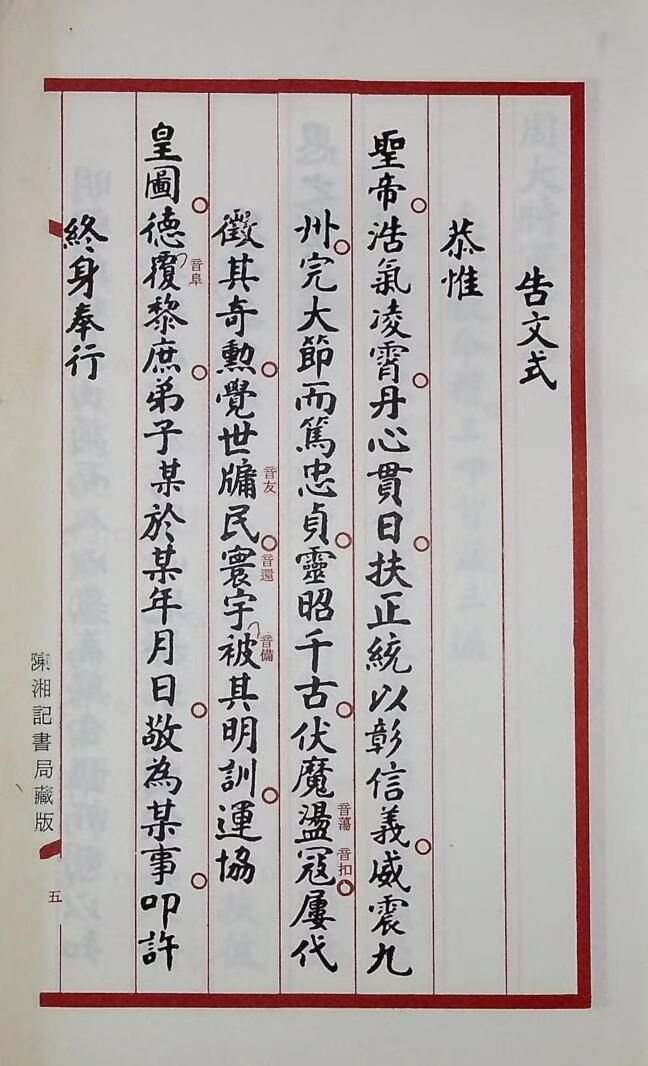 告文式
恭惟
聖帝浩氣凌霄丹心貫日扶正統以彰信義威震九
州完大節而篤忠貞靈昭千古伏魔盪冦屢代
音蕩
音扣
徵其奇勳覺世牖民寰宇被其明訓運協
音友
音還
音備
皇圖德覆黎庶弟子某於某年月日敬為某事叩許
音阜
終身奉行
陳湘記書局藏版
五